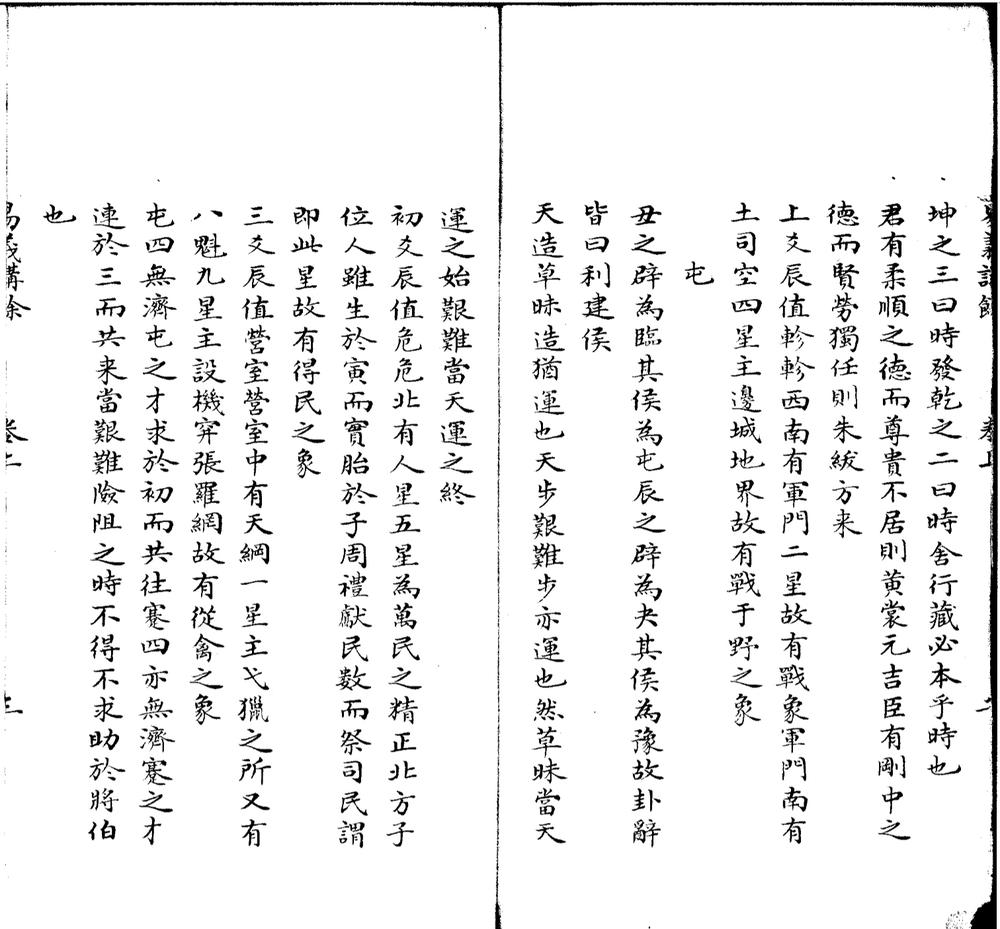 坤之三曰時發乾之二曰時舍行藏必本乎時也
君有柔順之德而尊貴不居則黃裳元吉臣有剛中之
德而賢勞獨任則朱紱方来
上爻辰值軫軫西南有軍門二星故有戰象軍門南有
土司空四星主邊城地界故有戰于野之象
屯
丑之辟為臨其侯為屯辰之辟為夬其侯為豫故卦辭
皆曰利建侯
天造草昧造猶運也天步艱難步亦運也然草昧當天
運之始艱難當天運之終
初爻辰值危危北有人星五星為萬民之精正北方子
位人雖生於寅而實胎於子周禮獻民數而祭司民謂
即此星故有得民之象
三爻辰值營室營室中有天綱一星主弋獵之所又有
八魁九星主設機穽張羅網故有從禽之象
屯四無濟屯之才求於初而共往蹇四亦無濟蹇之才
連於三而共来當艱難險阻之時不得不求助於將伯
也
易義講餘 卷上 三